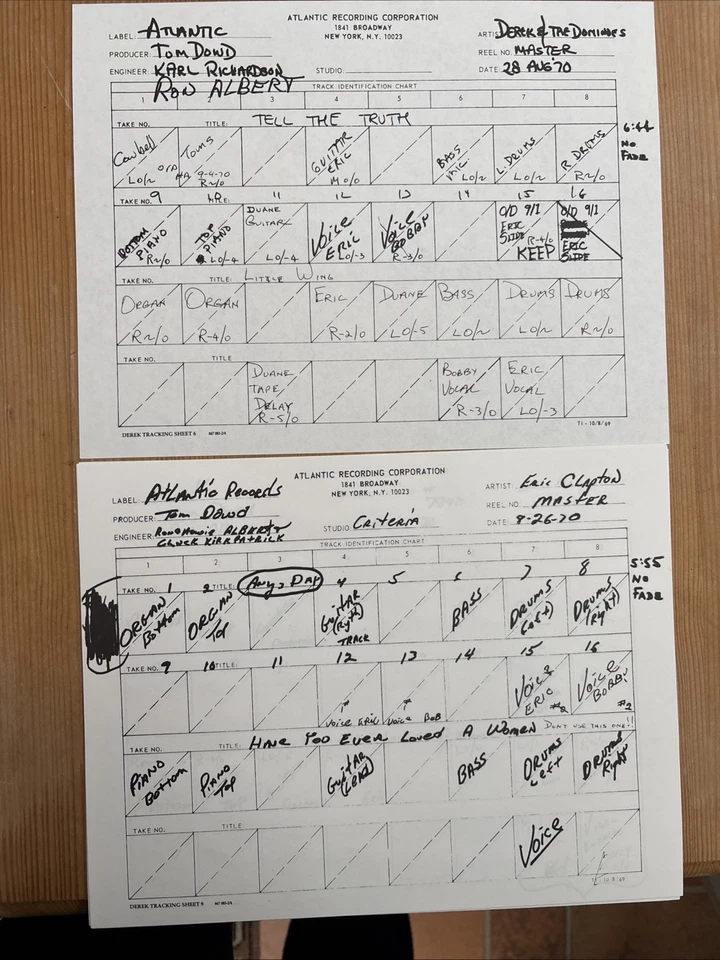 ATLANTIC RECORDING CORPORATION
1841 BROADWAY
NEW YORK, N.Y. 10023
LABEL: ATLANTIC
PRODUCER: TOM DOWD
ENGINEER: KARL RICHARDSON
RON ALBERT
STUDIO:
ARTIST DEREK & THE DOMINOES
REEL NO. MASTER
DATE: 28 AUG '70
TRACK IDENTIFICATION CHART
1 2 3 4 5 6 7 8
TAKE NO. TITLE: TELL THE TRUTH
6:44
NO
FADE
Cowbell LO/2
TOMS 9-4-70 R2/0
GUITAR ERIC M 0/0
BASS MIC LO/2
L DRUMS LO/2
R DRUMS R2/0
TAKE NO. 9 11 12 13 14 15 16
BOTTOM PIANO R2/0
TOP PIANO LO/-4
DUANE GUITAR LO/-4
VOICE ERIC LO/-3
VOICE BOBBY R-3/0
O/D 9/1 ERIC SLIDE R-4/0 KEEP
O/D 9/1 ERIC SLIDE
TAKE NO. TITLE: LITTLE WING
ORGAN R2/0
ORGAN R-4/0
ERIC R-2/0
DUANE LO/-5
BASS LO/2
DRUMS LO/2
DRUMS R2/0
TAKE NO. TITLE
DUANE TAPE DELAY R-5/0
BOBBY VOCAL R-3/0
ERIC VOCAL LO/-3
DEREK TRACKING SHEET 6
T1 - 10/8/69
ATLANTIC RECORDING CORPORATION
1841 BROADWAY
NEW YORK, N.Y. 10023
LABEL: Atlantic Records
PRODUCER: Tom Dowd
ENGINEER: Ron & Howie ALBERT
CHUCK KIRKPATRICK
STUDIO: Criteria
ARTIST: Eric Clapton
REEL NO. MASTER
DATE: 8-26-70
TRACK IDENTIFICATION CHART
1 2 3 4 5 6 7 8
TAKE NO. 1 2 TITLE: Any Day 4 5 6 7 8
5:55
NO
FADE
ORGAN Bottom
ORGAN Top
Guitar (Ryth) TRACK
BASS
DRUMS (Left)
DRUMS (Right)
TAKE NO. 9 10 TITLE: 11 12 13 14 15 16
Voice ERIC
Voice BOB
Voice ERIC #2
Voice BOBBY #2
TAKE NO. TITLE: Have You Ever Loved A Women DON'T USE THIS ONE!!
PIANO Bottom
PIANO Top
Guitar (LEAD)
BASS
DRUMS Left
DRUMS Right
TAKE NO. TITLE
Voice
DEREK TRACKING SHEET 9